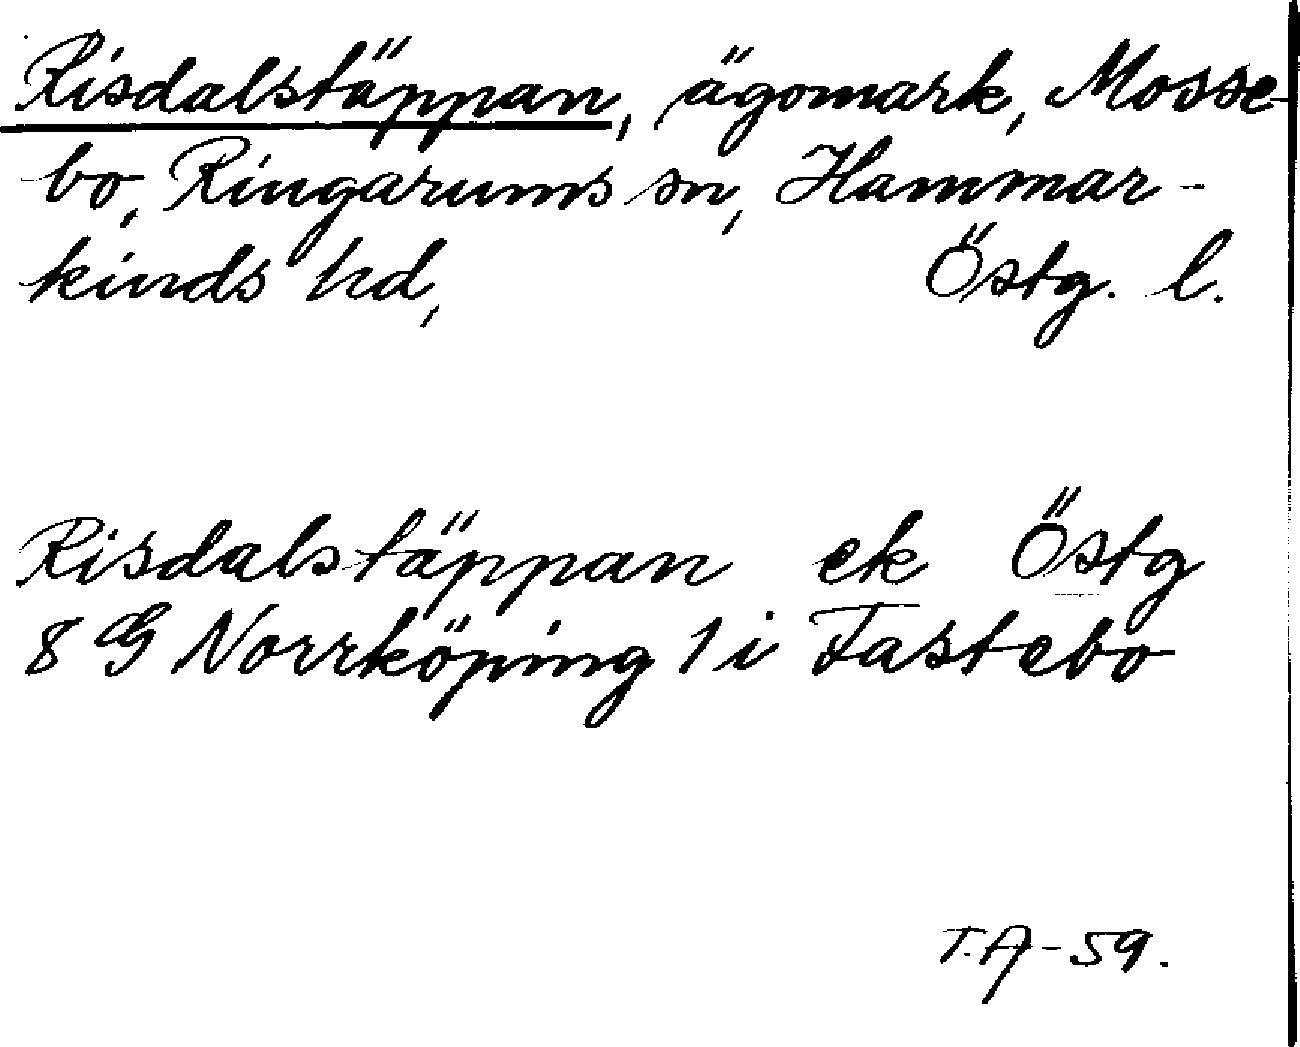 Risdalstäppan, ägomark, Mosse-
bo, Ringarums sn, Hammar-
kinds hd, Östg. l.
Risdalstäppan ek Östg
8 G Norrköping 1 i Fastebo
T.A-59.